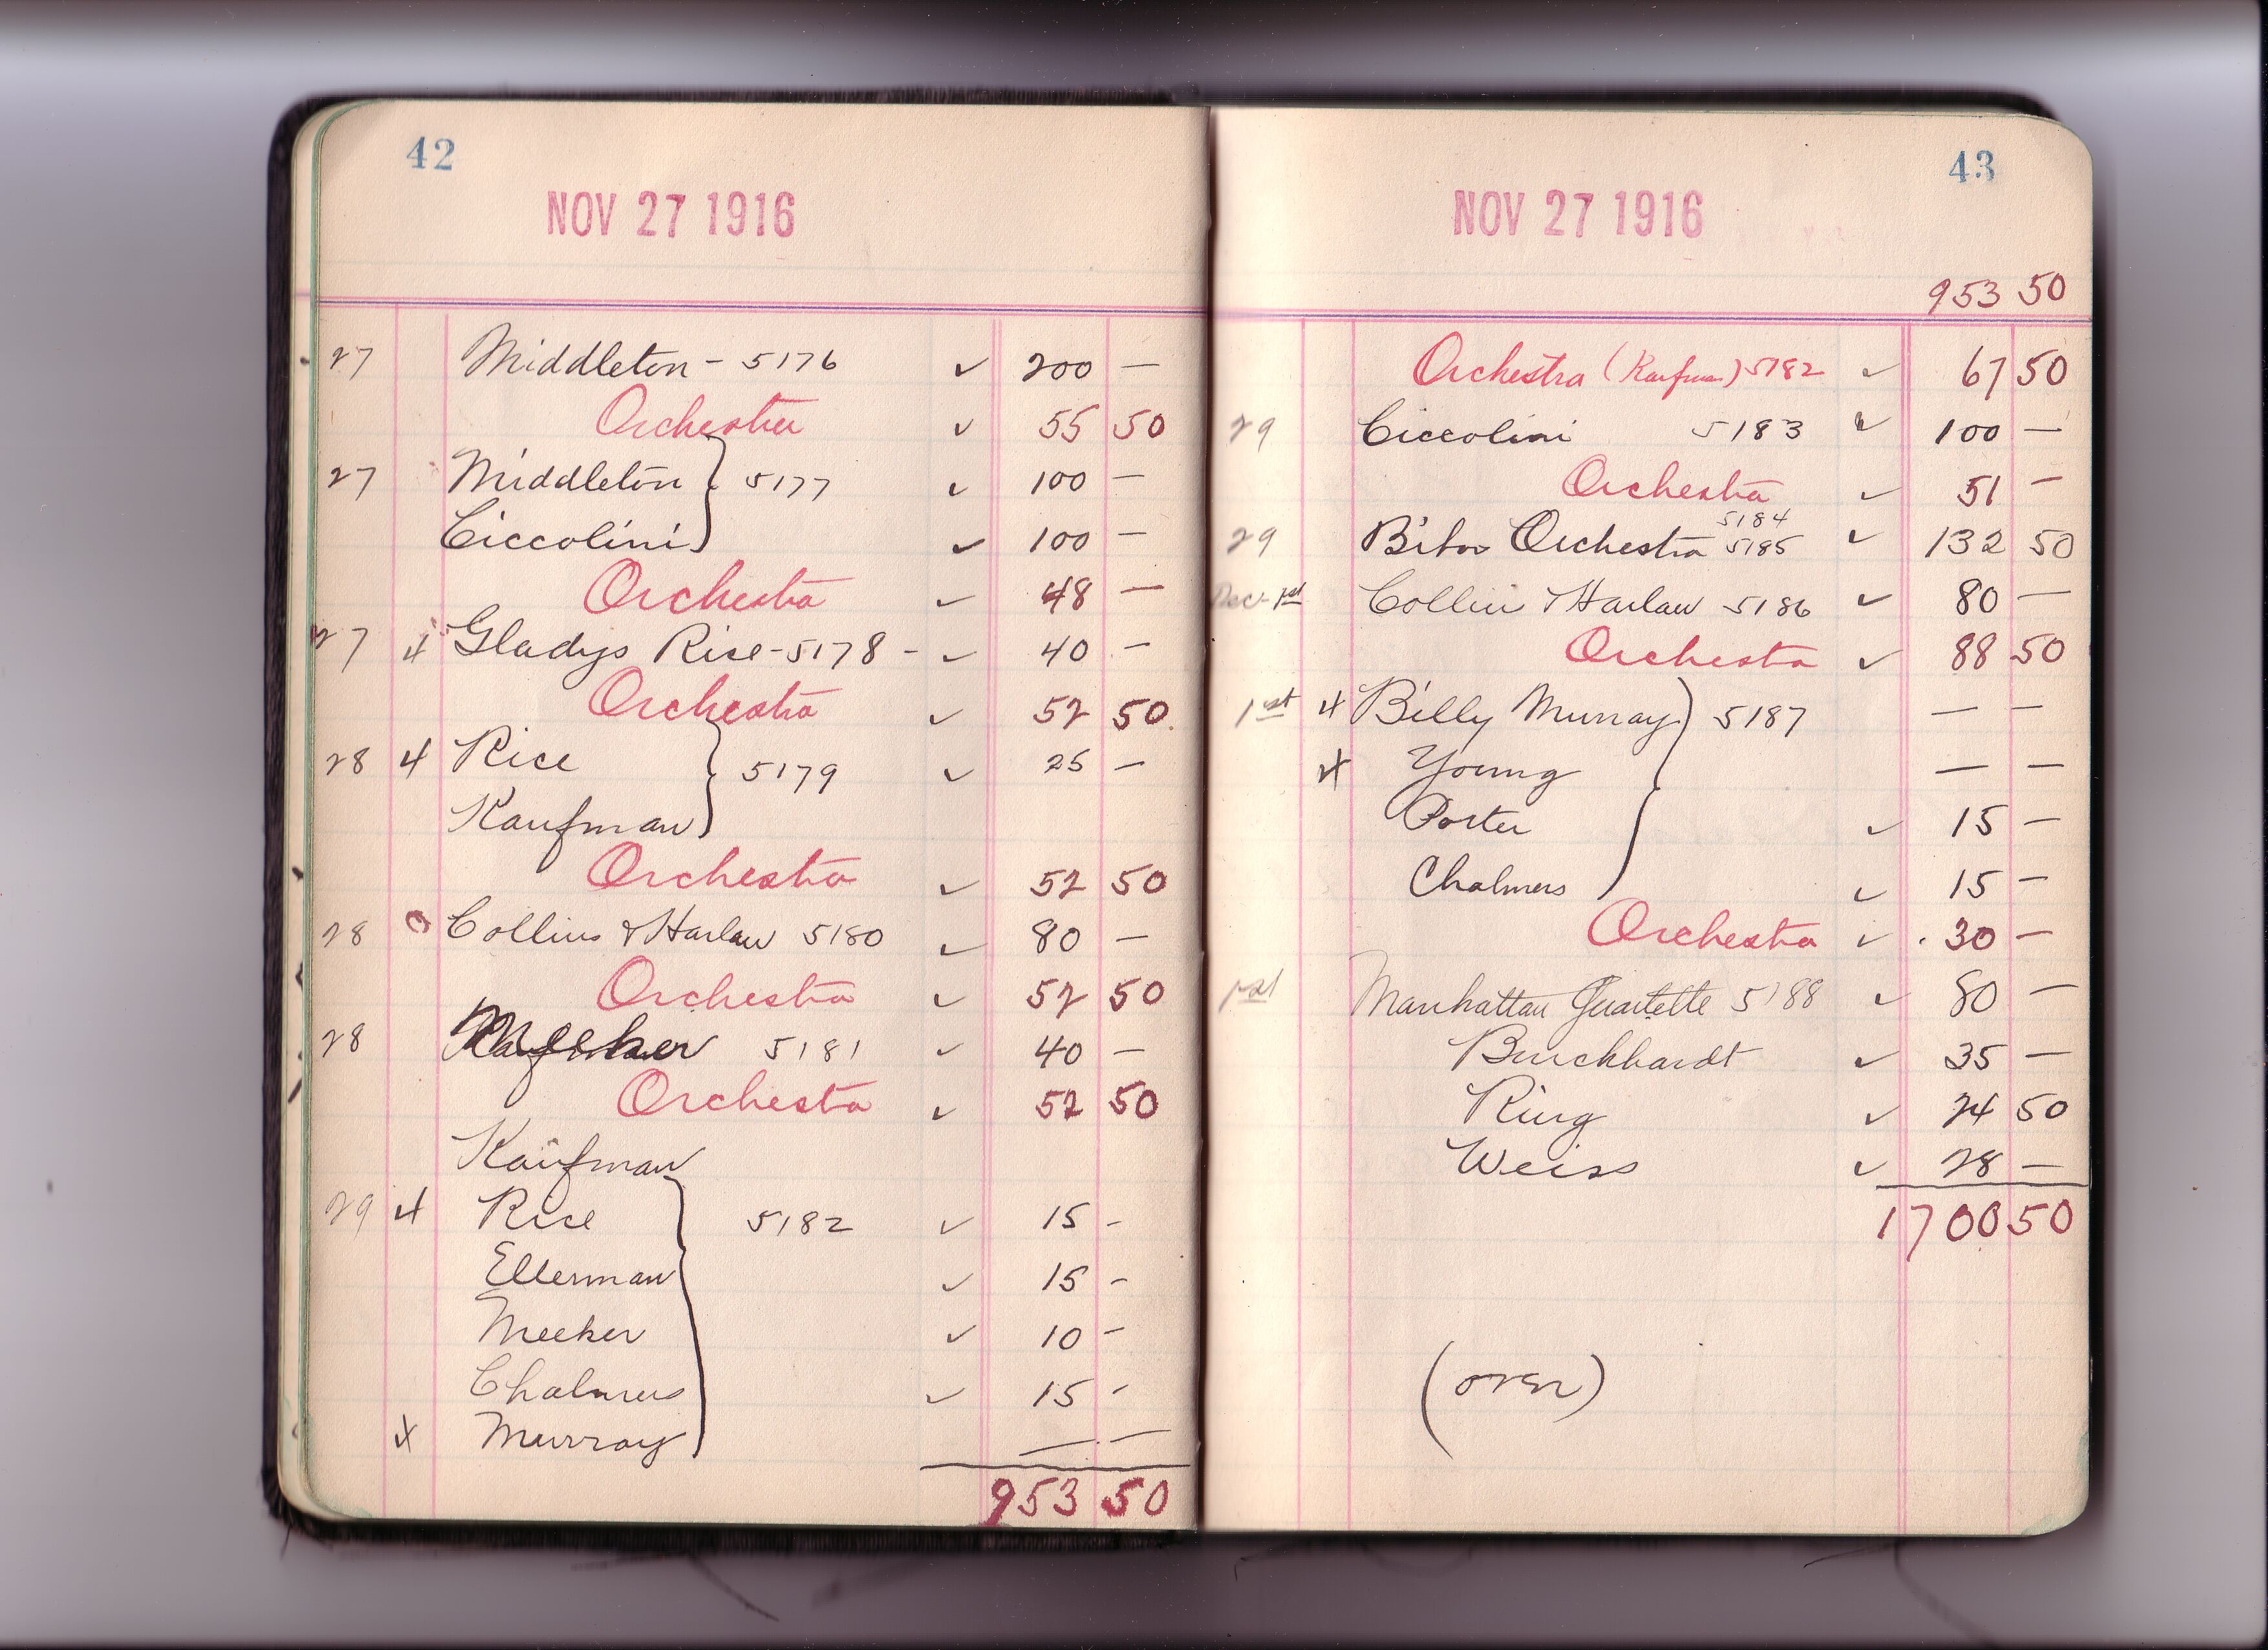 42
NOV 27 1916
27 Middleton - 5176 ✓ 200 —
Orchestra ✓ 55 50
27 Middleton } 5177 ✓ 100 —
Ciccolini ✓ 100 —
Orchestra ✓ 48 —
27 x Gladys Rice - 5178 - ✓ 40 —
Orchestra ✓ 52 50
28 x Rice } 5179 ✓ 25 —
Kaufman
Orchestra ✓ 52 50
28 Collins & Harlan 5180 ✓ 80 —
Orchestra ✓ 52 50
28 Meeker 5181 ✓ 40 —
Orchestra ✓ 52 50
Kaufman
29 x Rice } 5182 ✓ 15 -
Ellerman ✓ 15 -
Meeker ✓ 10 -
Chalmers ✓ 15 -
x Murray — —
953 50
43
NOV 27 1916
953 50
Orchestra (Kaufman) 5182 ✓ 67 50
29 Ciccolini 5183 ✓ 100 —
Orchestra ✓ 51 —
5184
29 Orchestra 5185 ✓ 132 50
Dec- 1st Collins & Harlan 5186 ✓ 80 —
Orchestra ✓ 88 50
1st x Billy Murray } 5187 — —
x Young — —
Porter ✓ 15 —
Chalmers ✓ 15 —
Orchestra ✓ 30 —
1st Manhattan Quartette 5188 ✓ 80 —
Burckhardt ✓ 35 —
Ring ✓ 24 50
Weiss ✓ 28 —
1700 50
(over)